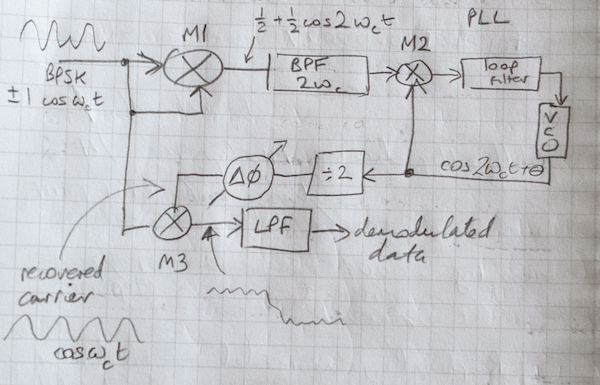 ½ + ½ cos 2ω_c t
PLL
M1
M2
BPSK
± 1 cos ω_c t
BPF
2ω_c
loop
filter
VCO
cos 2ω_c t + θ
Δϕ
÷2
M3
LPF
demodulated
data
recovered
carrier
cos ω_c t